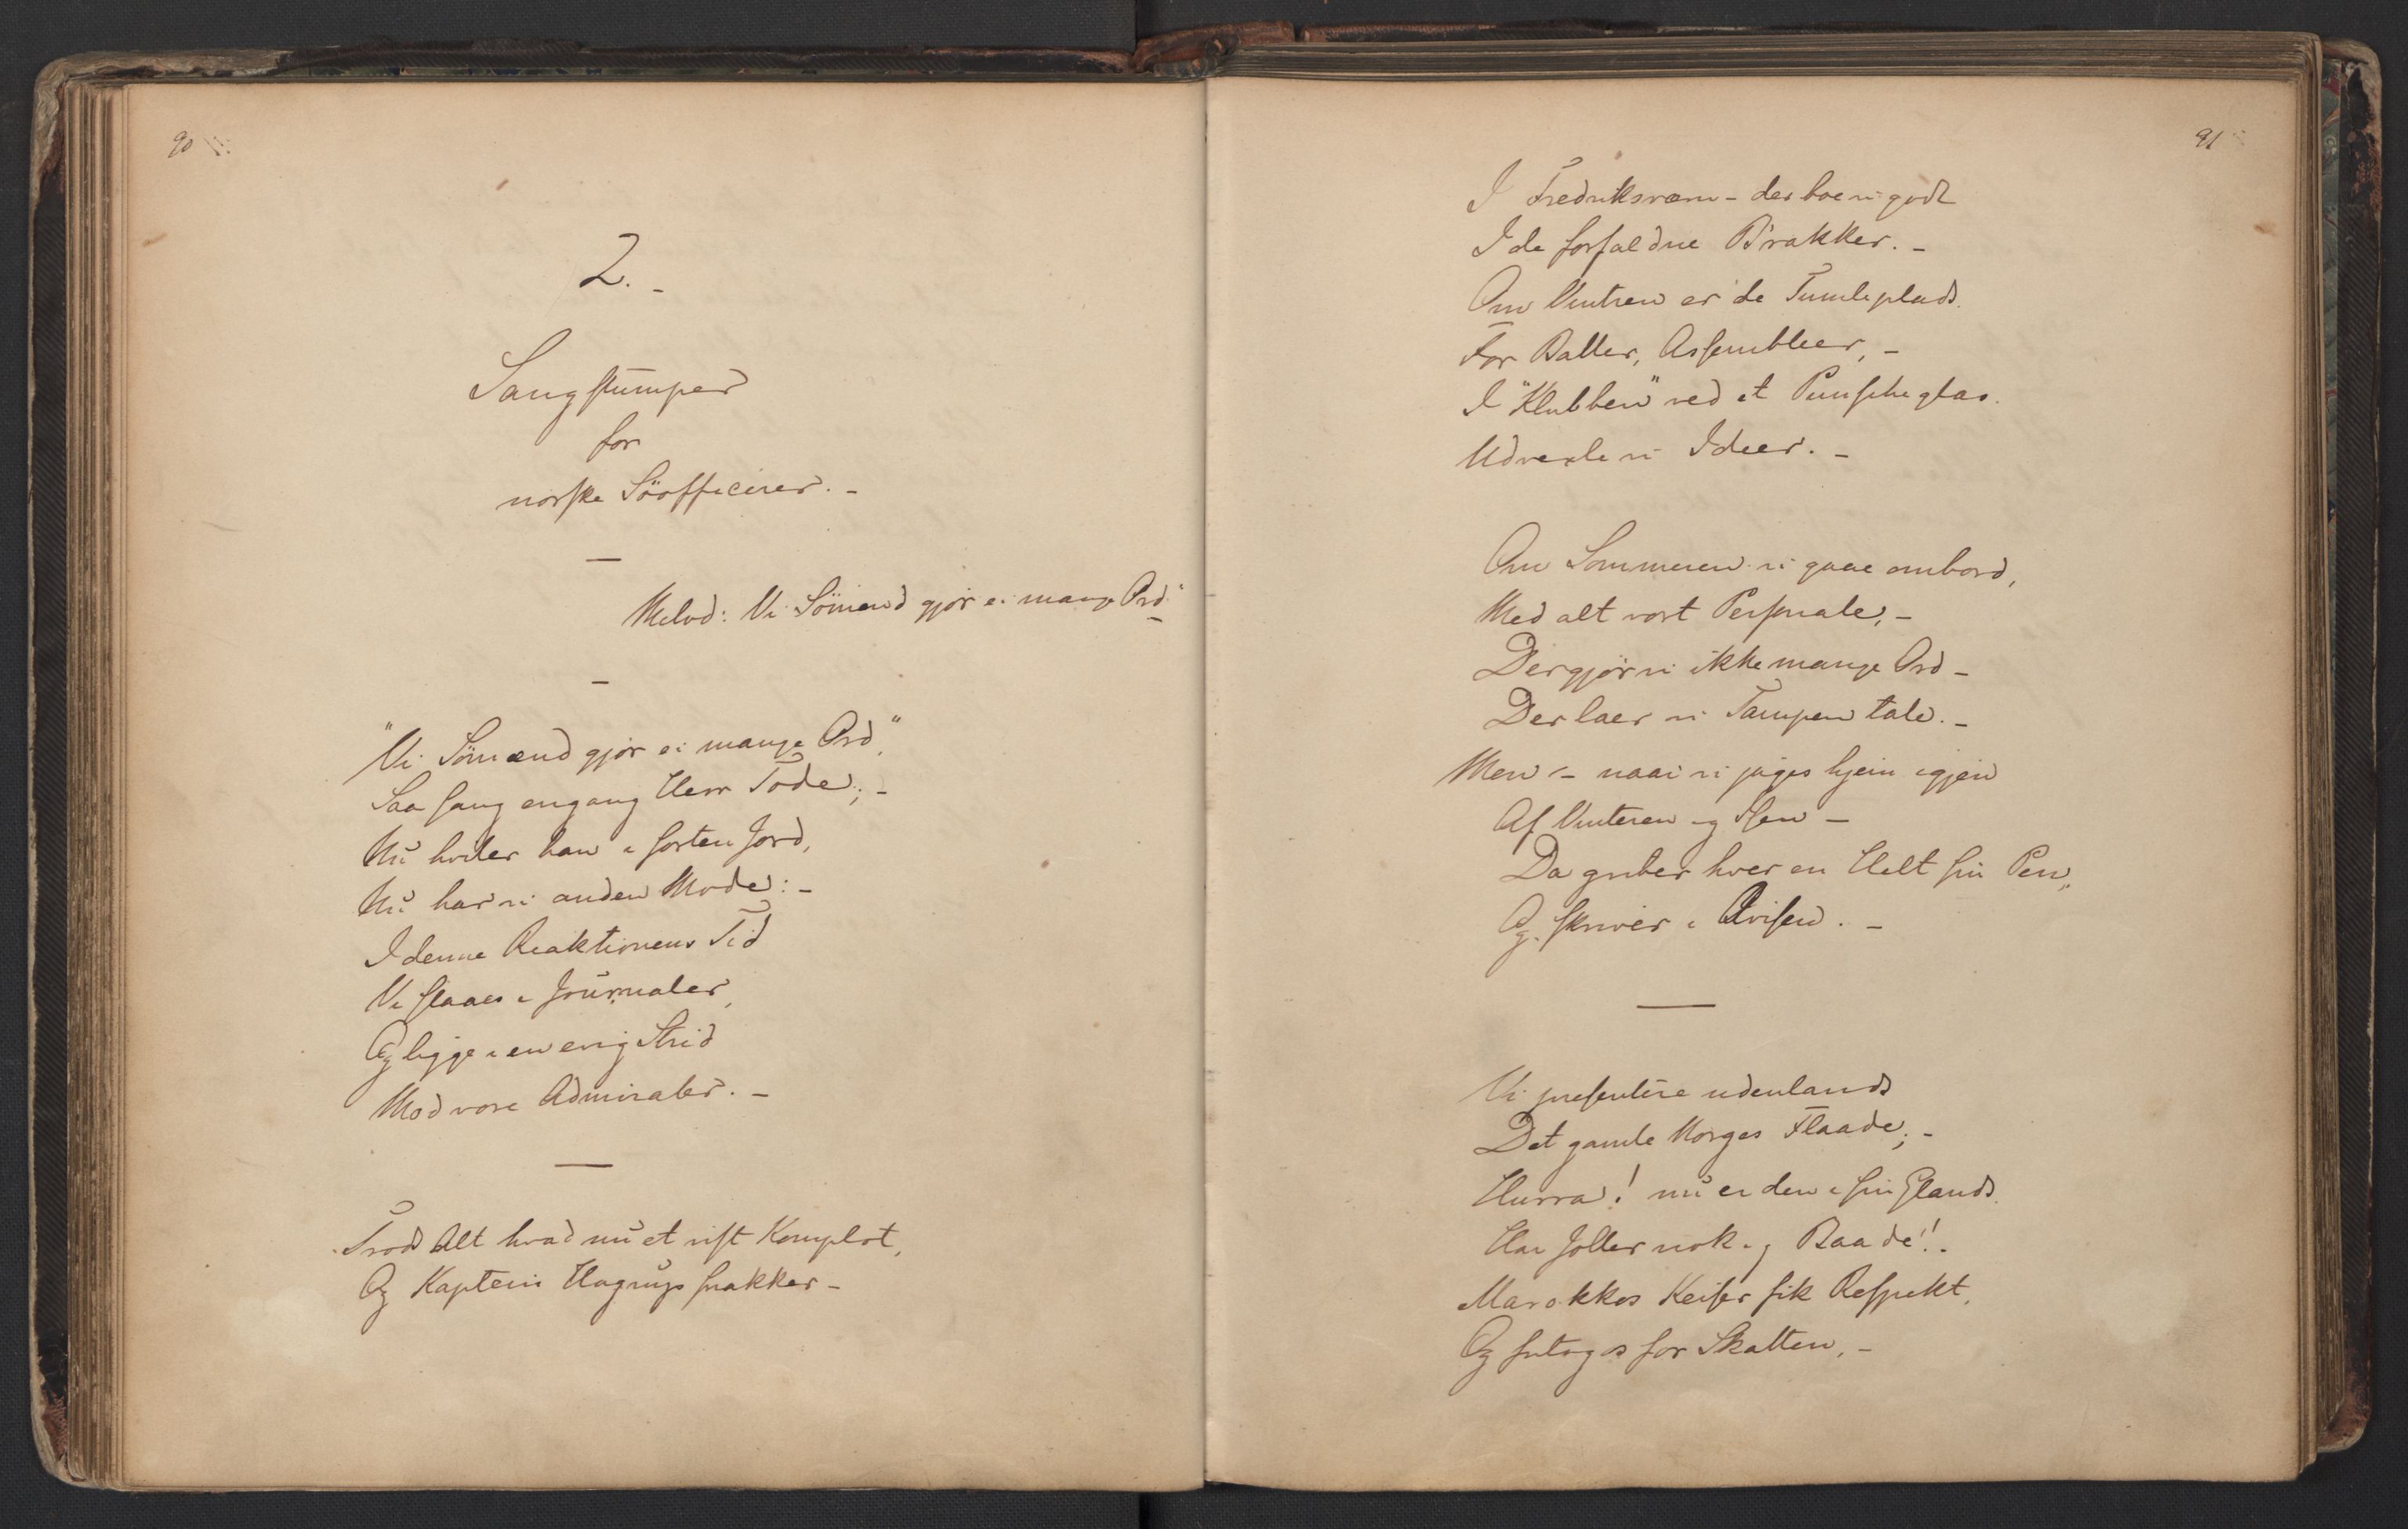 90
2. -
Sangstumper
for
norske Söofficirer. -
Melod: Vi Sömænd gjör ei mange Ord"
"Vi Sömænd gjör ei mange Ord",
Saa sang engang Herr Tode; -
Nu hviler han i sorten Jord,
Nu har vi anden Mode: -
I denne Reaktionens Tid
Vi slaaes i Journaler,
Og ligge i en evig Strid
Mod vore Admiraler. -
Trods Alt hvad nu et vist Komplot,
Og Kaptein Hagrups snakker -
91
I Fredriksværn - der boe vi godt
I de forfaldne Brakker. -
Om Vintren er de Tumleplads
For Baller, Assembleer, -
I "Klubben" ved et Punscheglas
Udvexle vi Ideer. -
Om Sommeren vi gaae ombord,
Med alt vort Personale, -
Der gjör vi ikke mange Ord -
Der laer vi Tampen tale. -
Men - naar vi jages hjem igjen
Af Vinteren og Isen -
Da griber hver en Helt sin Pen,
Og skriver i Avisen. -
Vi presentere udenlands
Det gamle Norges Flaade; -
Hurra! nu er den i sin Glands
Har Joller nok og Baade!
Marokkos Keiser fik Respekt,
Og fritog os for Skatten, -